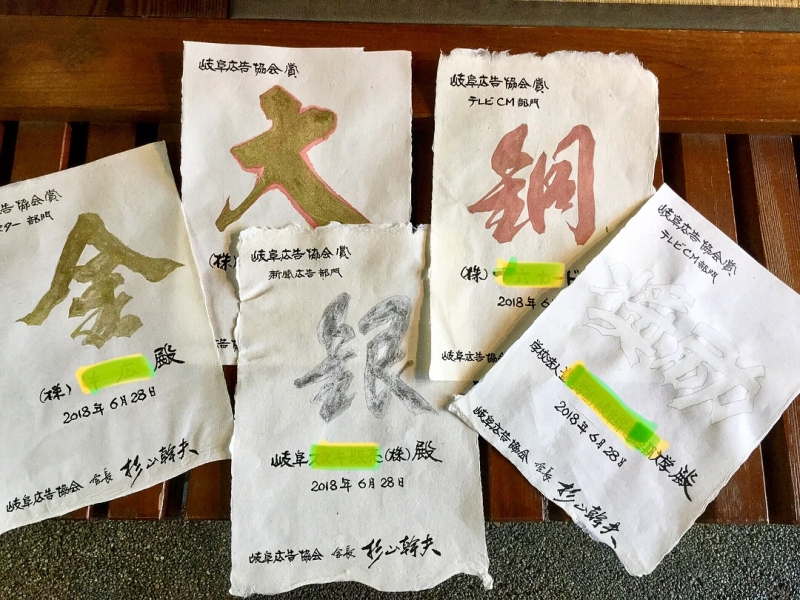 告協会賞
スター部門
金
(株)
広
殿
2018年6月28日
岐阜広告協会 会長 杉山幹夫
岐阜広告協会賞
大
(株)
岐阜広告協会賞
新聞広告部門
銀
岐阜
(株)殿
2018年6月28日
岐阜広告協会 会長 杉山幹夫
岐阜広告協会賞
テレビCM部門
銅
(株)
ド
2018年6
岐阜広告協
岐阜広告協会賞
テレビCM部門
奨励
学校法人
殿
2018年6月28日
岐阜広告協会 会長 杉山幹夫